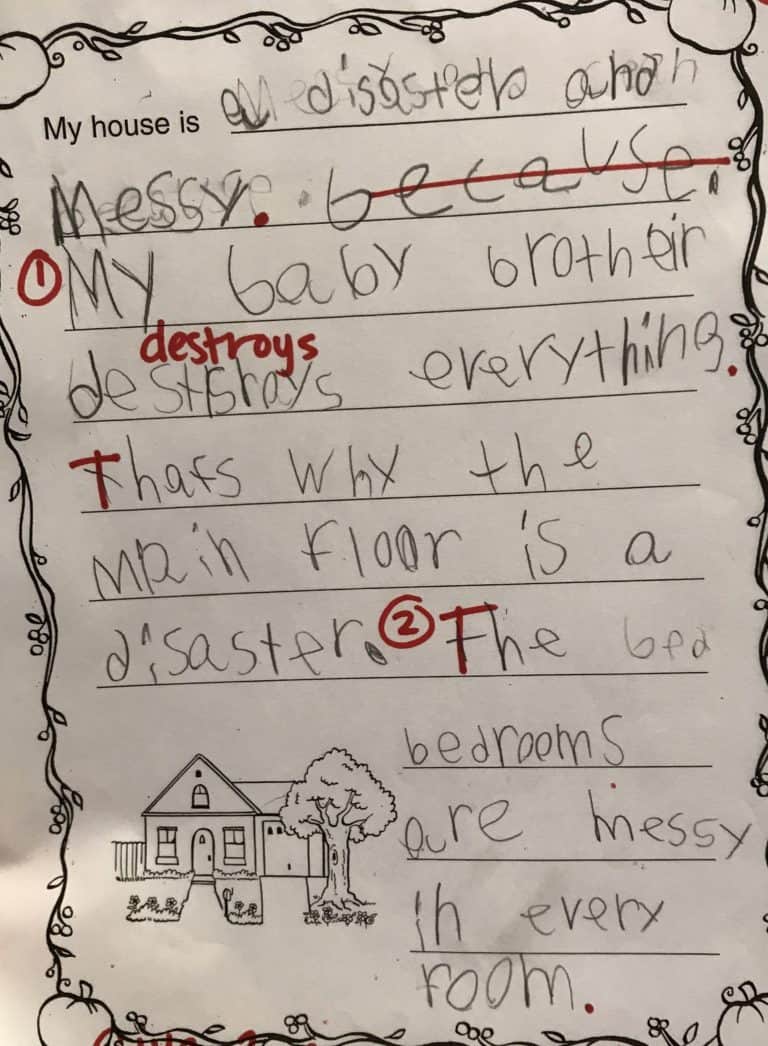 My house is a disaster and
Messy. because.
① My baby brother
destroys
destroys everything.
Thats why the
main floor is a
disaster. ② The bed
bedrooms
are messy
in every
room.